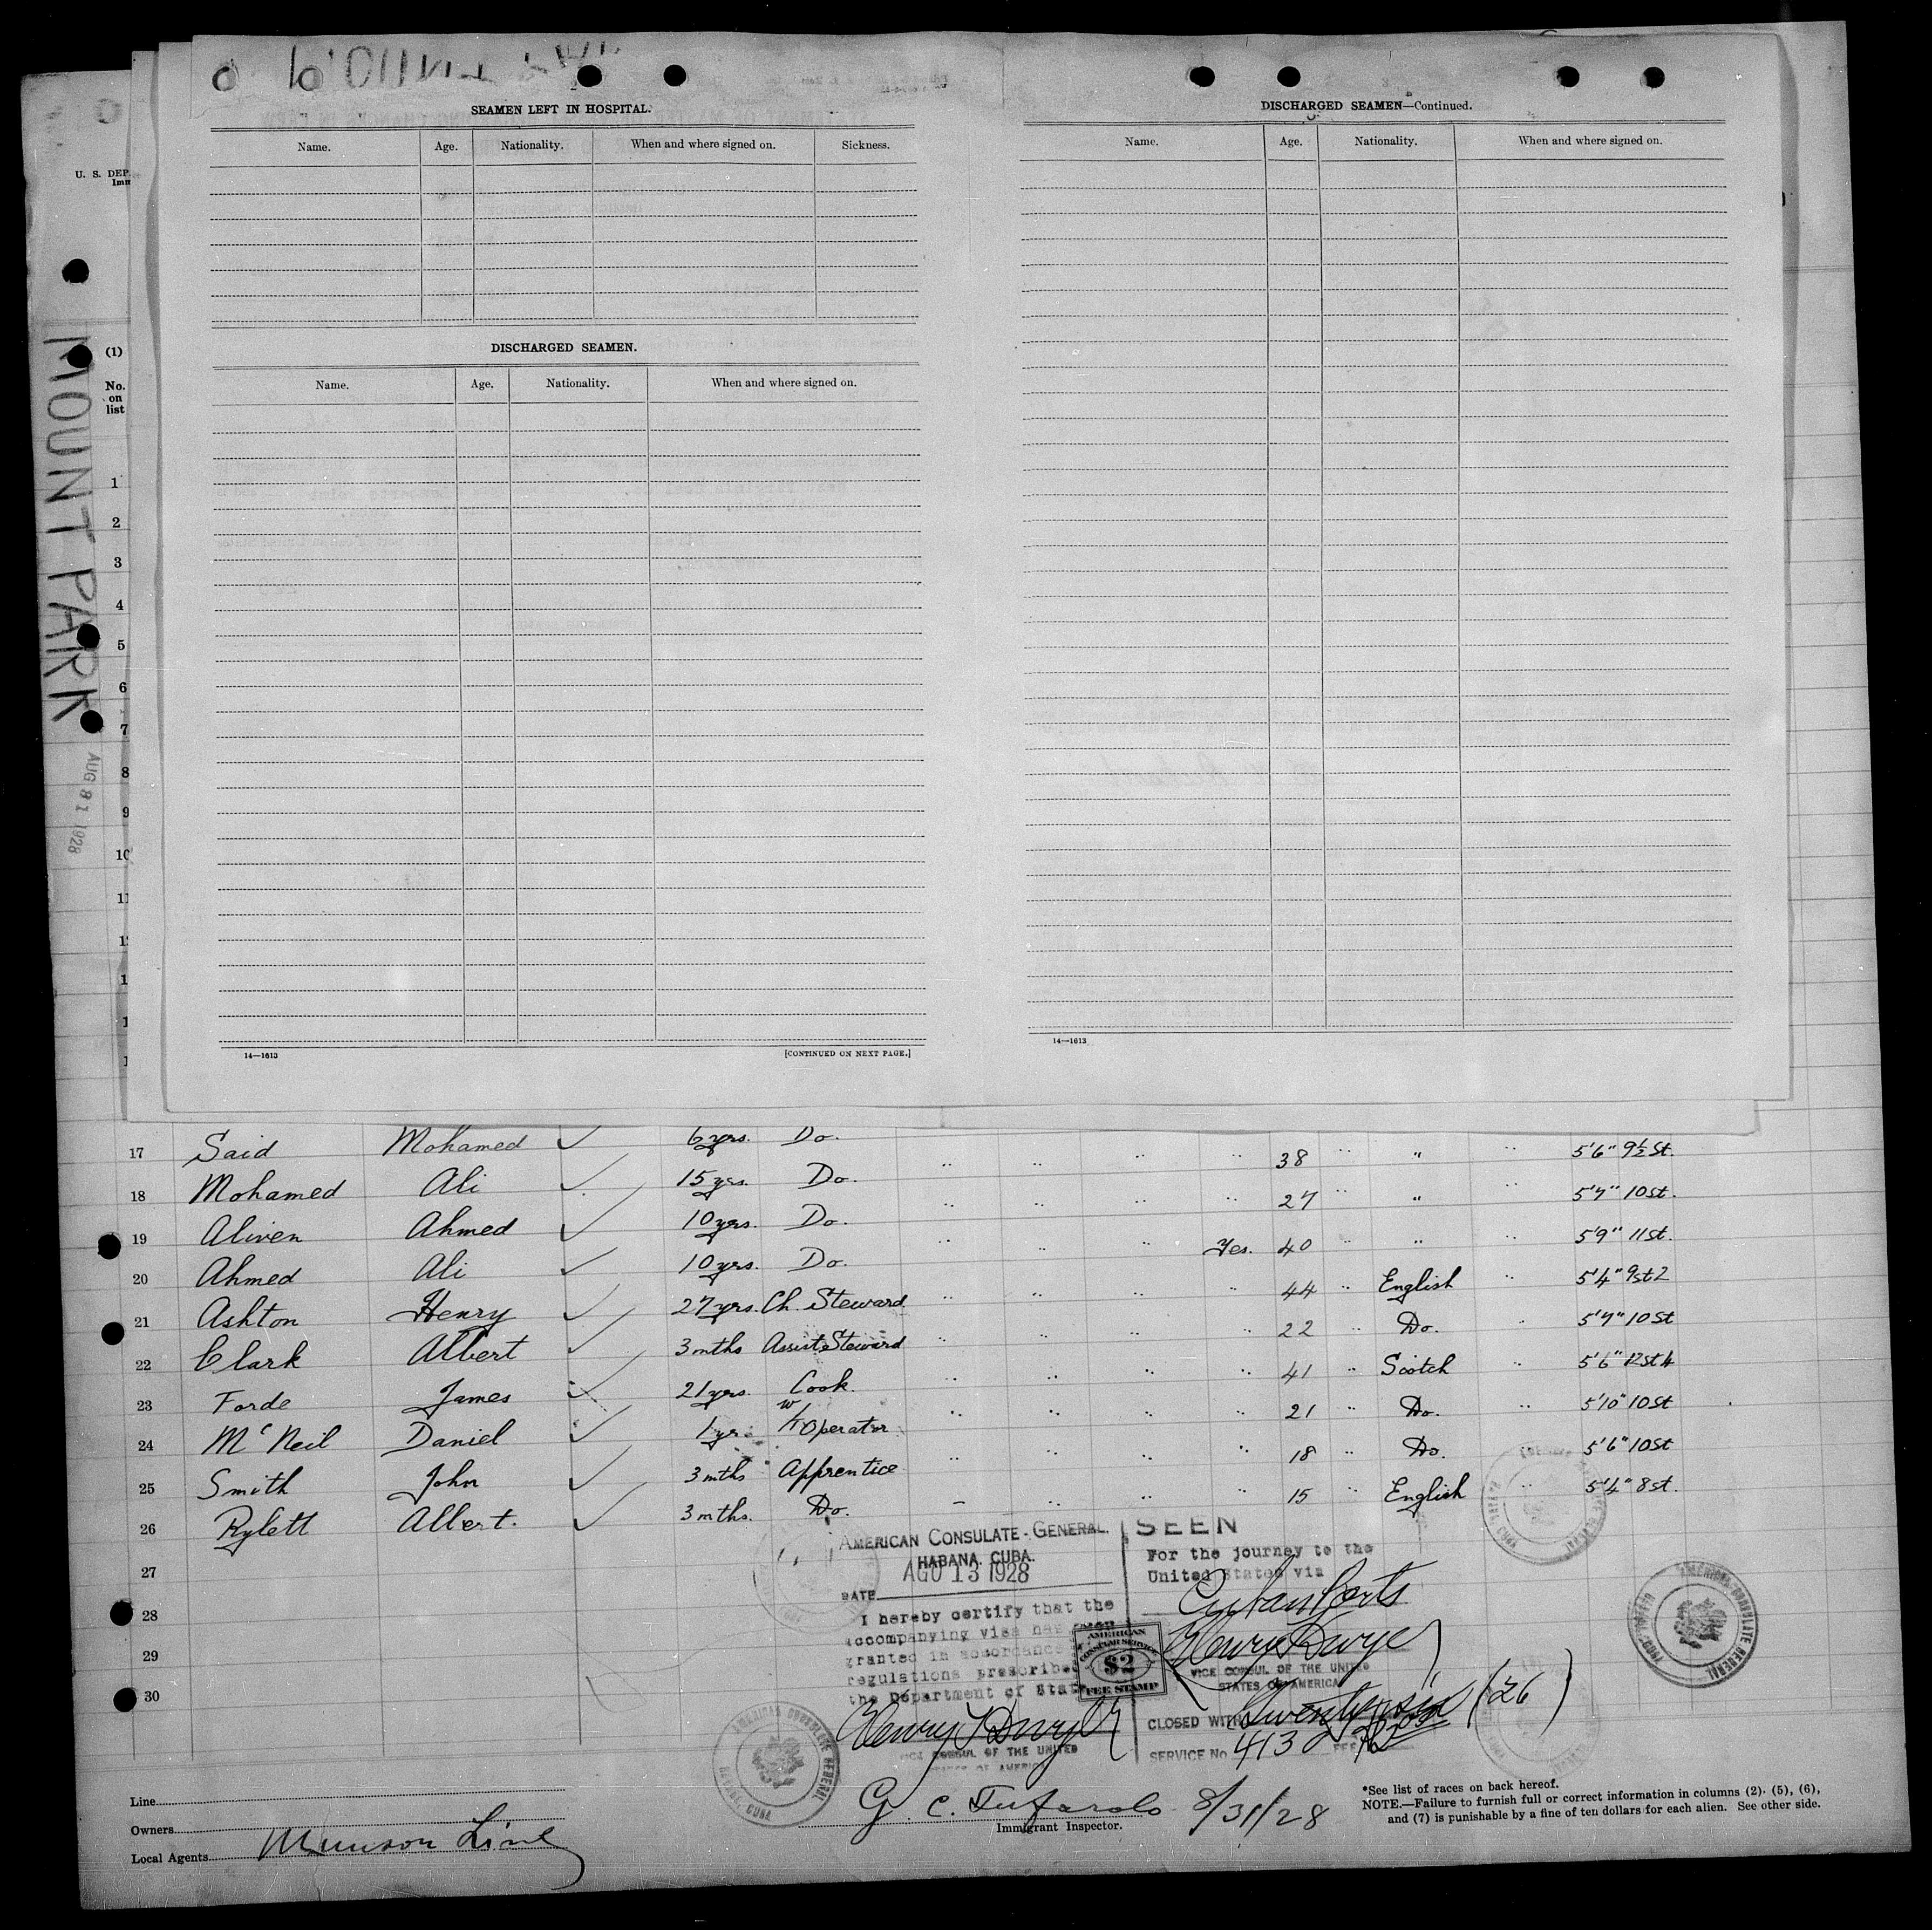 2
SEAMEN LEFT IN HOSPITAL.
Name. Age. Nationality. When and where signed on. Sickness.
DISCHARGED SEAMEN.
Name. Age. Nationality. When and where signed on.
14—1613 [CONTINUED ON NEXT PAGE.]
3
DISCHARGED SEAMEN—Continued.
Name. Age. Nationality. When and where signed on.
14—1613
U. S. DEP
Imm
MOUNT PARK
AUG 31 1928
(1)
No.
on
list
1
2
3
4
5
6
7
8
9
10
11
17 Said Mohamed ✓ 6 yrs. Do. " " " " 38 " " " 5'6" 9½ St.
18 Mohamed Ali ✓ 15 yrs. Do. " " " " 27 " " " 5'7" 10 St.
19 Aliven Ahmed ✓ 10 yrs. Do. " " " Yes. 40 " " " 5'9" 11 St.
20 Ahmed Ali ✓ 10 yrs. Do. " " " " 44 " English " 5'4" 9st 2
21 Ashton Henry ✓ 27 yrs. Ch. Steward " " " " 22 " Do. " 5'7" 10 St
22 Clark Albert ✓ 3 mths Assist Steward " " " " 41 " Scotch " 5'6" 12 St 4
23 Forde James ✓ 21 yrs. Cook " " " " 21 " Do. " 5'10" 10 St
24 McNeil Daniel ✓ 1 yr. W/T Operator " " " " 18 " Do. " 5'6" 10 St
25 Smith John ✓ 3 mths Apprentice " " " " 15 " English " 5'4" 8 st.
26 Rylett Albert. ✓ 3 mths. Do.
27
28
29
30
AMERICAN CONSULATE-GENERAL.
HABANA, CUBA.
AGO 13 1928
DATE
I hereby certify that the
accompanying visa has been
granted in accordance
regulations prescribed
the Department of State
Henry T Dwyer
VICE CONSUL OF THE UNITED
STATES OF AMERICA
AMERICAN
CONSULAR SERVICE
$2
FEE STAMP
SEEN
For the journey to the
United States via
Cuban Ports
Henry T Dwyer
VICE CONSUL OF THE UNITED
STATES OF AMERICA
CLOSED WITH Twenty six (26)
SERVICE No. 4132 FEE
AMERICAN CONSULATE GENERAL
HABANA, CUBA
Line
Owners
Local Agents Munson Line
G. C. Tufarolo 8/31/28
Immigrant Inspector.
*See list of races on back hereof.
NOTE.—Failure to furnish full or correct information in columns (2), (5), (6),
and (7) is punishable by a fine of ten dollars for each alien. See other side.